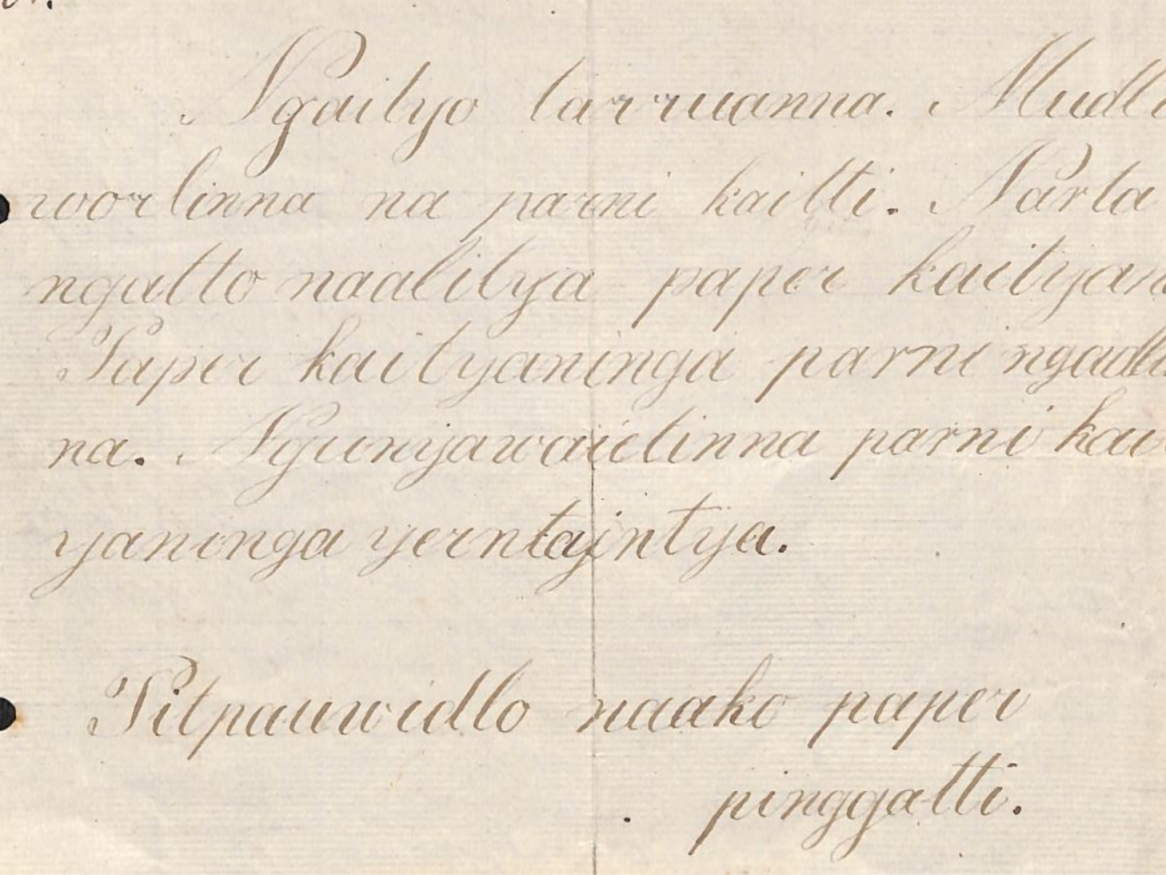 Ngaityo tarruanna. Mudli
worlinna na parni kaitti. Narta
ngatto naalitya paper kaityan
Paper kaityaninga parni ngadlu
na. Ngunyawaietinna parni kai
yaninga yerntayintya.
Pitpauwidlo naako paper
pinggatti.